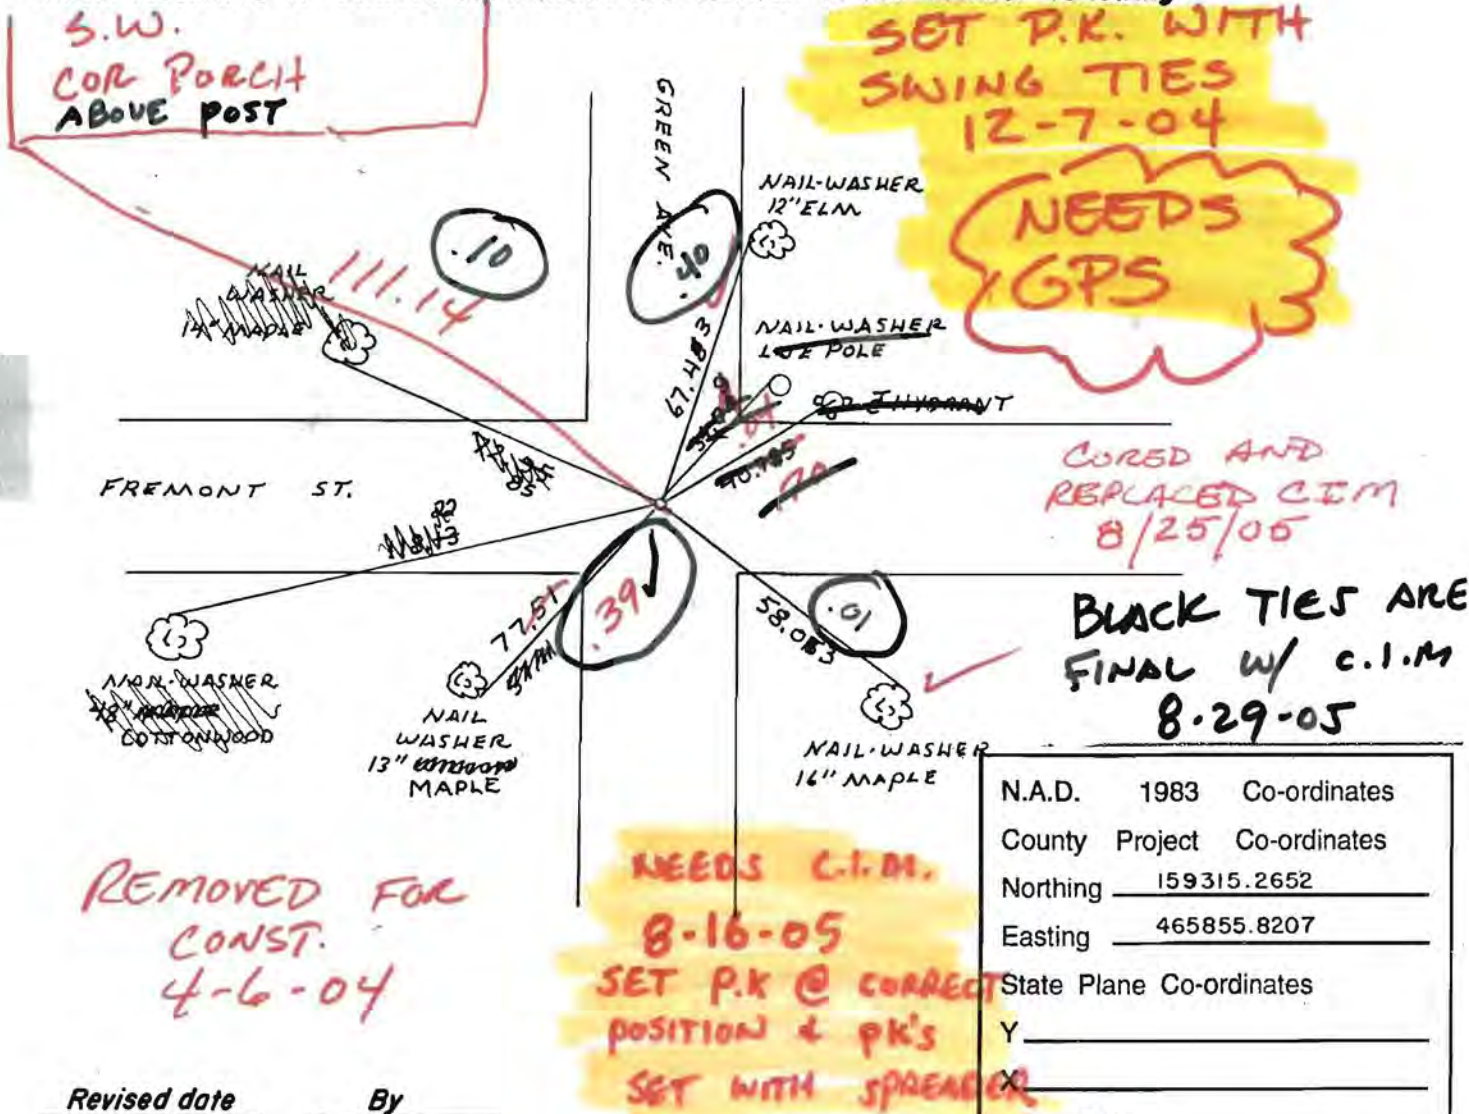 S.W.
COR PORCH
ABOVE POST
SET P.K. WITH
SWING TIES
12-7-04
NEEDS
GPS
GREEN AVE.
NAIL-WASHER
12" ELM
.10
.40
111.14
NAIL
WASHER
14" MAPLE
67.483
NAIL-WASHER
POLE
FREMONT ST.
CORED AND
REPLACED CIM
8/25/05
77.51
.39
58.0
.01
BLACK TIES ARE
FINAL W/ C.I.M
8-29-05
NAIL-WASHER
48"
COTTONWOOD
NAIL
WASHER
13"
MAPLE
NAIL-WASHER
16" MAPLE
REMOVED FOR
CONST.
4-6-04
NEEDS C.I.M.
8-16-05
SET P.K @ CORRECT
POSITION & PK'S
SET WITH SPREADER
N.A.D. 1983 Co-ordinates
County Project Co-ordinates
Northing 159315.2652
Easting 465855.8207
State Plane Co-ordinates
Y
X
Revised date By